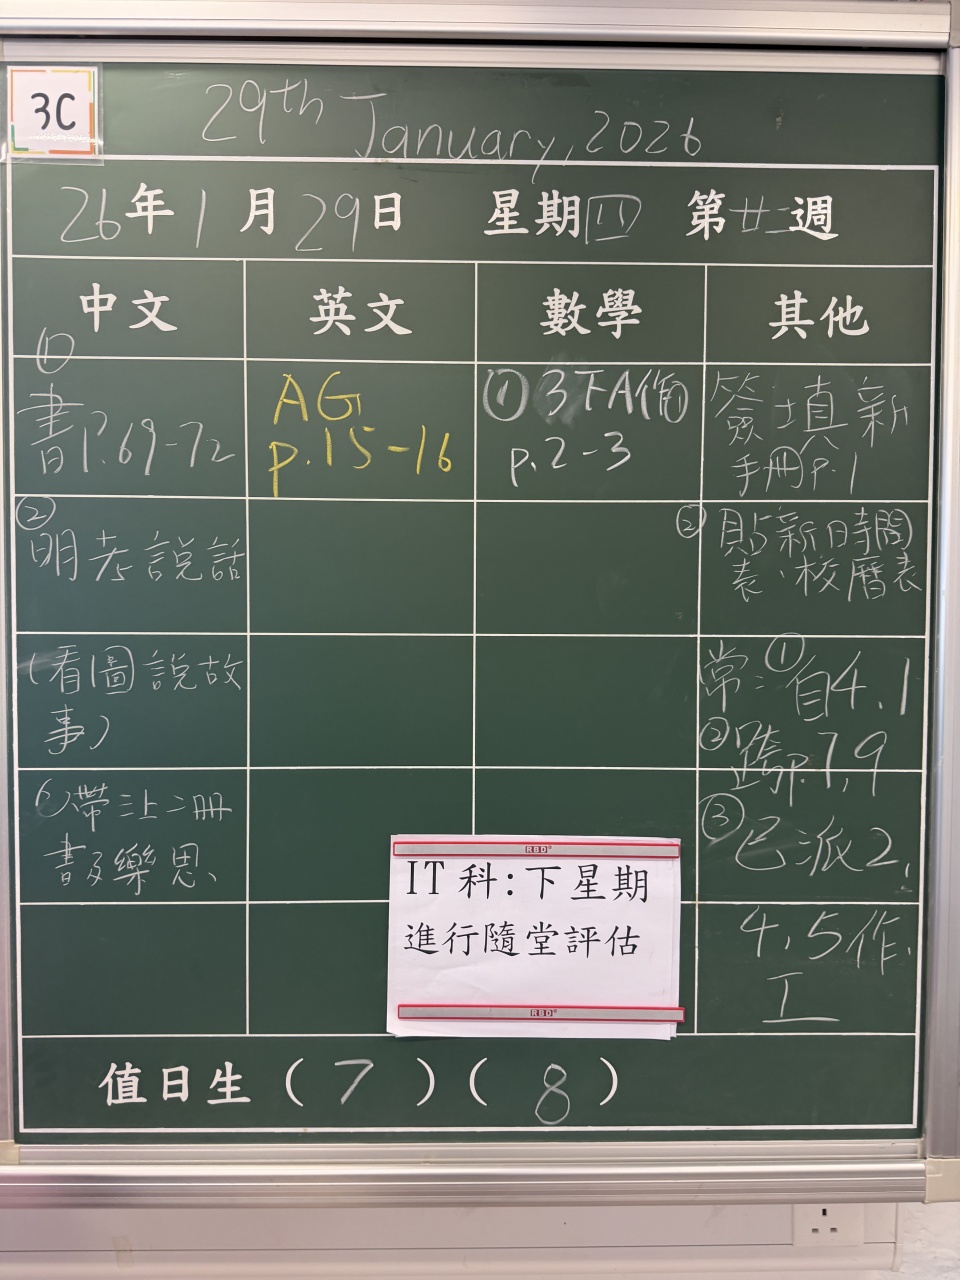 3C
29th January, 2026
26年1月29日 星期四 第廿二週
中文 英文 數學 其他
①
書P.69-72
②
明考說話
(看圖說故
事)
帶三上二冊
書及樂思
AG
p.15-16
① 3下A作
p.2-3
簽+填新
手冊p.1
② 貼新時間
表、校曆表
常:①自4.1
② p.7,9
③已派2,
4,5作
工
IT科:下星期
進行隨堂評估
RBD
RBD
值日生(7)(8)